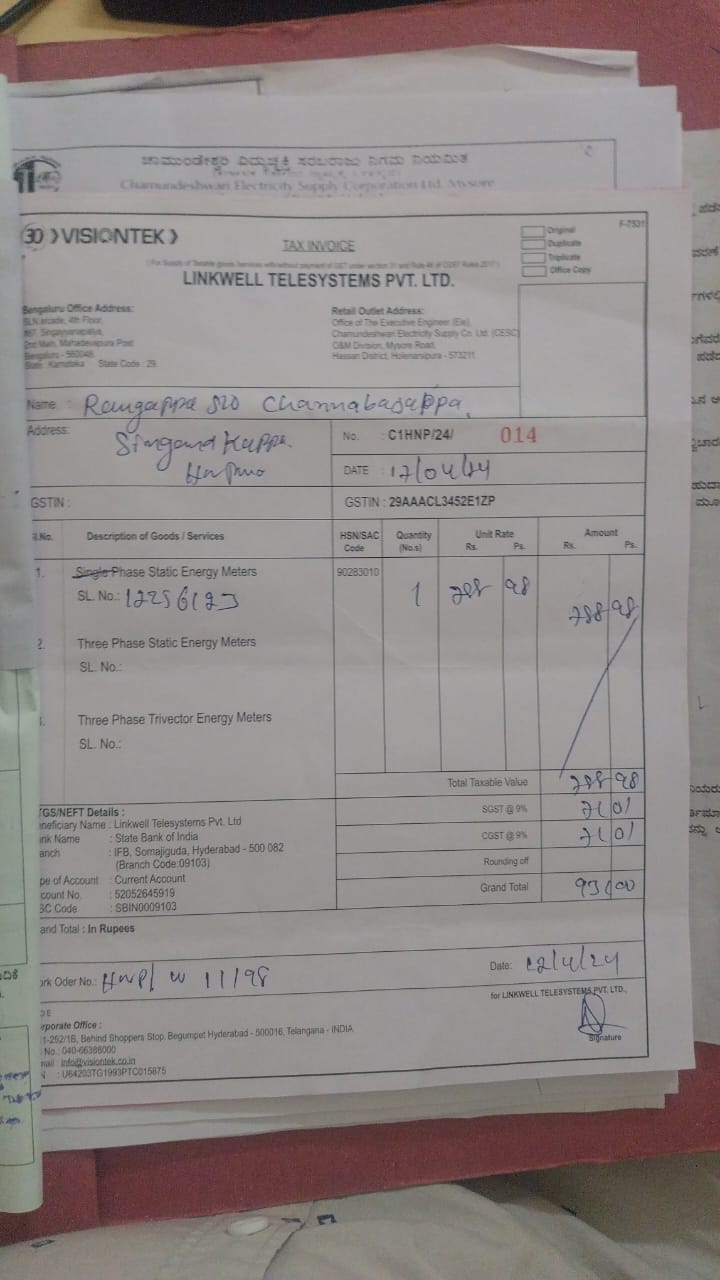 ಚಾಮುಂಡೇಶ್ವರಿ ವಿದ್ಯುಚ್ಛಕ್ತಿ ಸರಬರಾಜು ನಿಗಮ ನಿಯಮಿತ
Chamundeshwari Electricity Supply Corporation Ltd. Mysore
F-7531
30 VISIONTEK
TAX INVOICE
Original
Duplicate
Triplicate
Office Copy
LINKWELL TELESYSTEMS PVT. LTD.
Bengaluru Office Address:
SLN arcade, 4th Floor,
2nd Main, Mahadevapura Post
Bengaluru - 560048.
State : Karnataka State Code : 29
Retail Outlet Address:
Office of The Executive Engineer (Ele),
Chamundeshwari Electricity Supply Co. Ltd. (CESC)
O&M Division, Mysore Road,
Hassan District, Holenarsipura - 573211
Name : Rangappa S/o Channabasappa
Address:
No. : C1HNP/24/ 014
DATE : 12/04/24
GSTIN :
GSTIN : 29AAACL3452E1ZP
Sl.No. Description of Goods / Services HSN/SAC Code Quantity (No.s) Unit Rate Rs. Ps. Amount Rs. Ps.
1. Single Phase Static Energy Meters 90283010
SL. No.: 1 788 98 788 98
2. Three Phase Static Energy Meters
SL. No.:
Three Phase Trivector Energy Meters
SL. No.:
Total Taxable Value 788 98
TGS/NEFT Details :
SGST @ 9% 71 01
neficiary Name : Linkwell Telesystems Pvt. Ltd
nk Name : State Bank of India
CGST @ 9% 71 01
anch : IFB, Somajiguda, Hyderabad - 500 082
(Branch Code:09103)
Rounding off
pe of Account : Current Account
count No. : 52052645919
Grand Total 931 00
SC Code : SBIN0009103
and Total : In Rupees
ork Oder No.: HNP/ W 11/98
Date: 12/4/24
for LINKWELL TELESYSTEMS PVT. LTD.,
rporate Office :
1-252/1B, Behind Shoppers Stop, Begumpet Hyderabad - 500016, Telangana - INDIA
No.: 040-66388000
mail : info@visiontek.co.in
N : U64203TG1993PTC015875
Signature